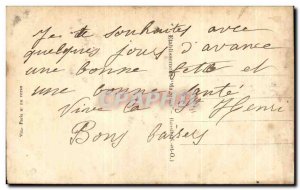 Je te souhaites avec
quelques jours d'avance
une bonne fête et
une bonne santé
Vive la St Henri
Bons baisers